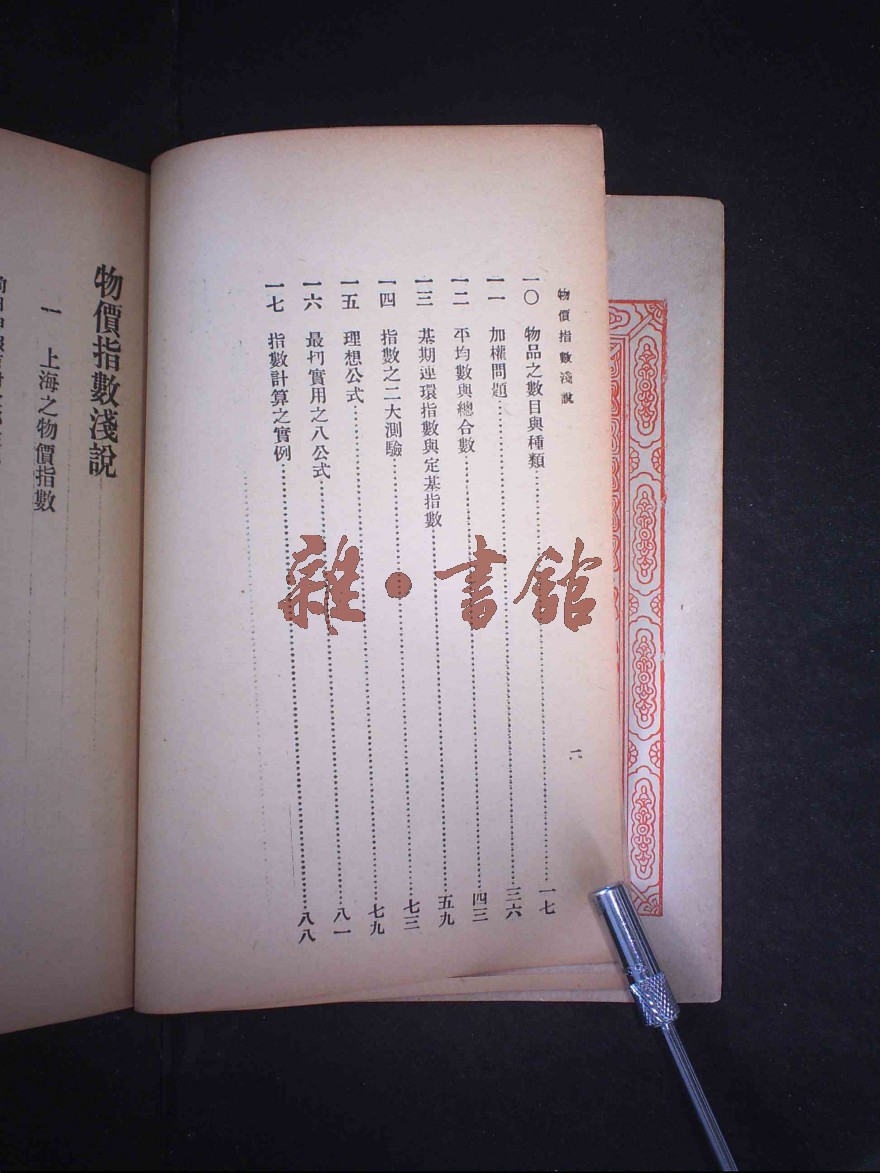 物價指數淺說
一〇 物品之數目與種類……一七
一一 加權問題……三六
一二 平均數與總合數……四三
一三 基期連環指數與定基指數……五九
一四 指數之二大測驗……七三
一五 理想公式……七九
一六 最切實用之八公式……八一
一七 指數計算之實例……八八
雜·書館
物價指數淺說
一 上海之物價指數